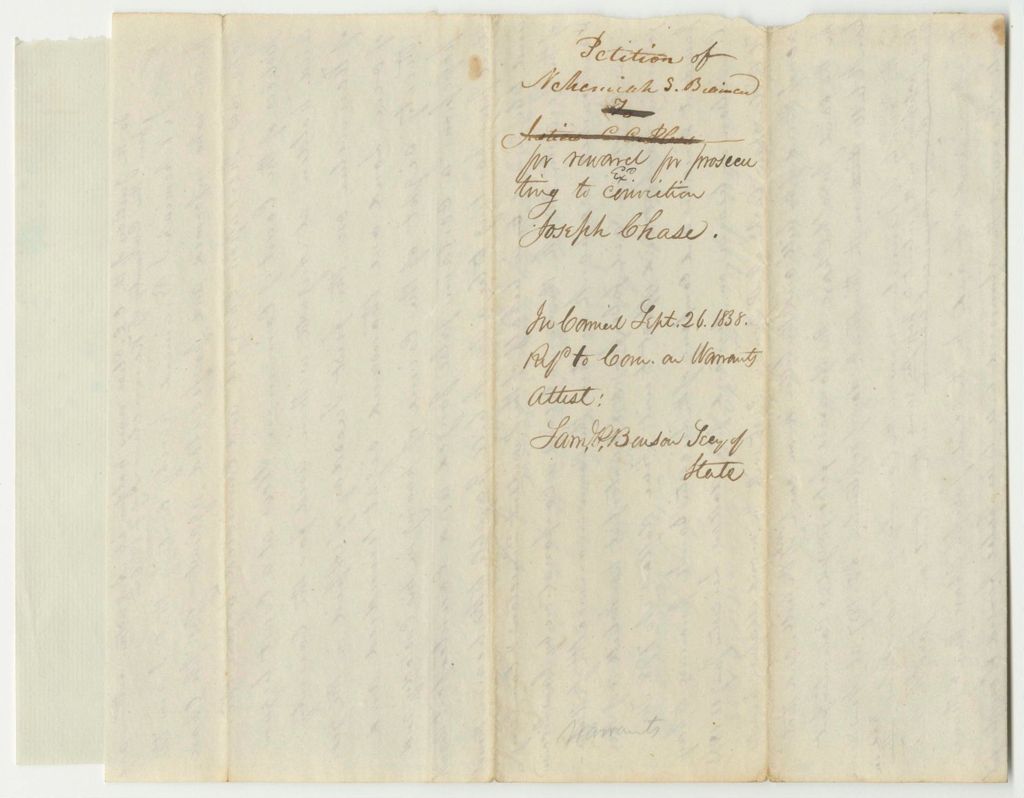 Petition of
Nehemiah S.
To
Justices
for reward for prosecu
ting to conviction
Joseph Chase.
In Council Sept. 26. 1838.
Refd to Com. on Warrants
Attest:
Saml P. Benson Secy of
State
Warrants